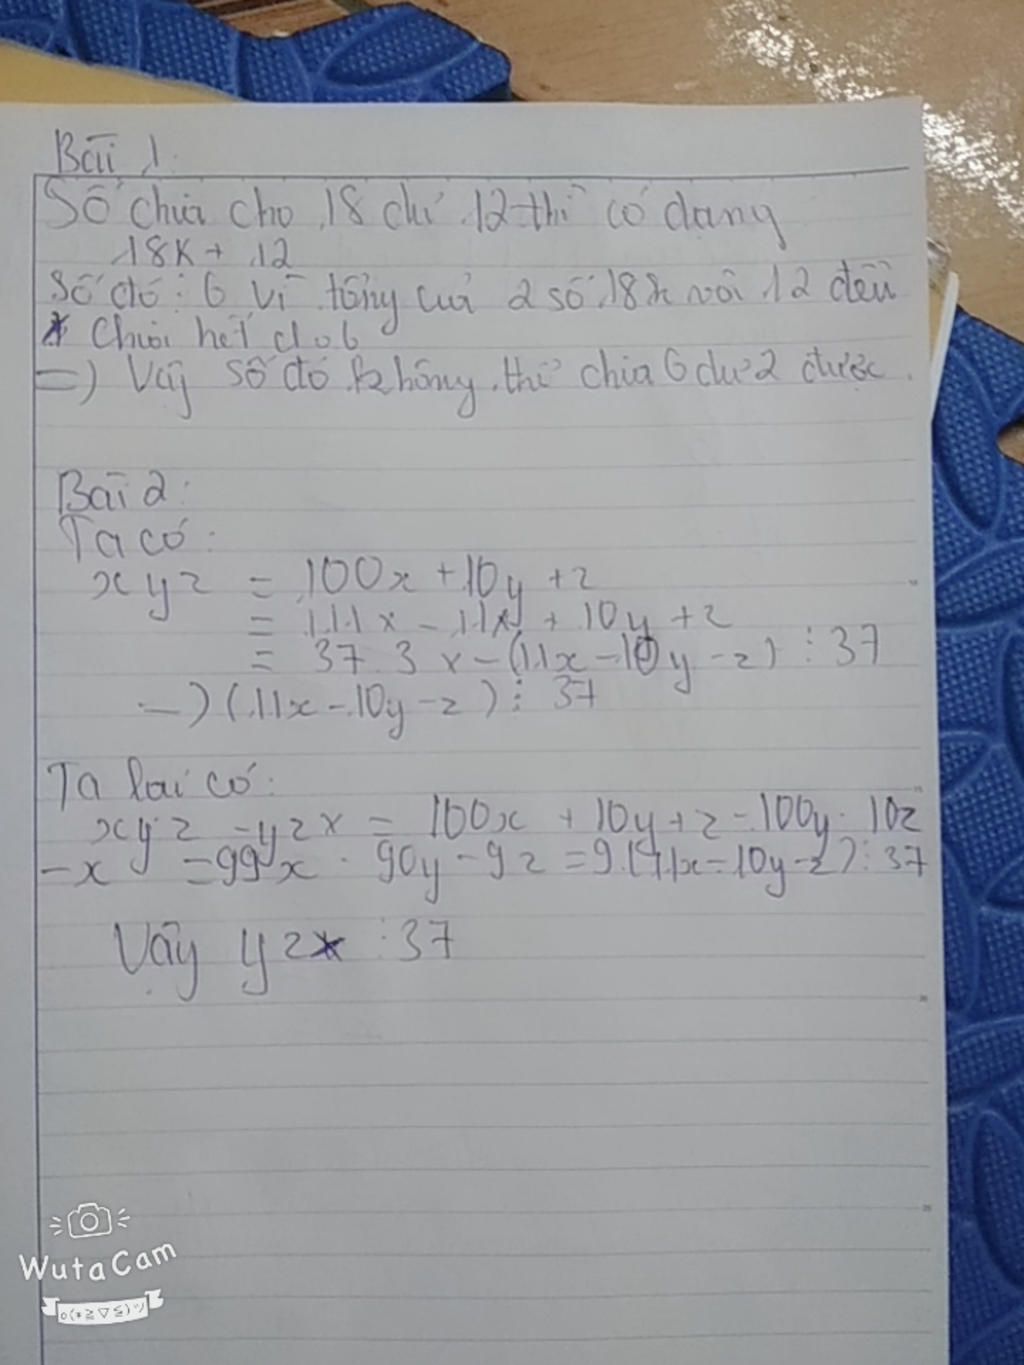 Bài 1:
Số chia cho 18 dư 12 thì có dạng
18K + 12
Số đó ⋮ 6 vì tổng của 2 số 18k với 12 đều
chia hết cho 6
=) Vậy số đó không thể chia 6 dư 2 được.
Bài 2:
Ta có:
xyz = 100x + 10y + z
= 111x - 11x + 10y + z
= 37.3x - (11x - 10y - z) ⋮ 37
=) (11x - 10y - z) ⋮ 37
Ta lại có:
xyz - yzx = 100x + 10y + z - 100y - 10z
- x = 99x - 90y - 9z = 9.(11x - 10y - z) ⋮ 37
Vậy yzx ⋮ 37
WutaCam